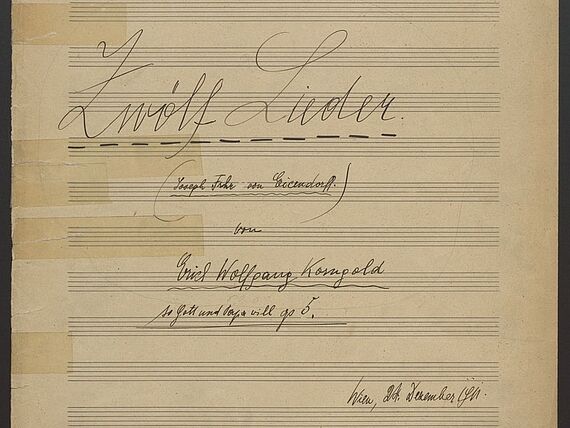 Zwölf Lieder.
(Joseph Frhr von Eicendorff.)
von
Erich Wolfgang Korngold
so Gott und Papa will op 5.
Wien, 24. Dezember 1911.